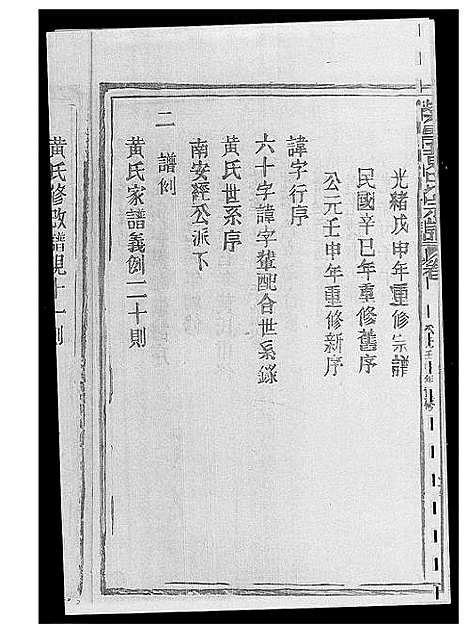 光緒戊申年重修宗譜
民國辛巳年重修舊序
公元壬申年重修新序
諱字行序
六十字諱字輩配合世系錄
黃氏世系序
南安經公派下
二 譜例
黃氏家譜義例二十則
黃氏修改譜規十一則